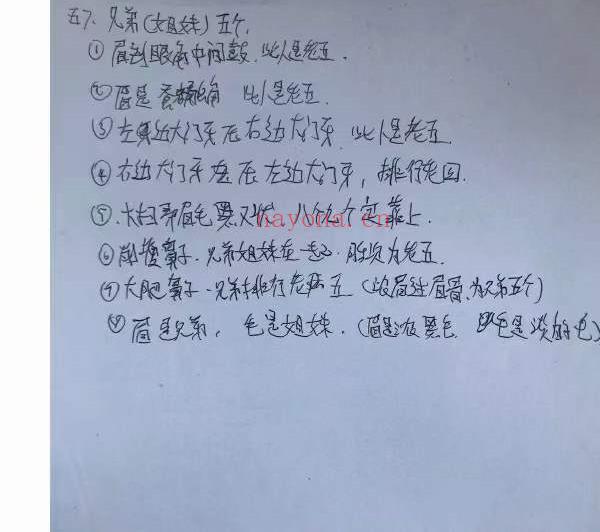 五7、兄弟(姐妹)五个,
① 眉到眼角中间鼓,此人是老五.
② 眉是 此人是老五.
③ 左边大门牙压右边大门牙,此人是老五.
④ 右边大门牙压左边大门牙,排行老四.
⑤ 眉毛黑又长,八个九个实靠上.
hayona.cn
⑥ 削瘦鼻子.兄弟姐妹在一起.胜汝为老五.
⑦ 大肥鼻子.兄弟排行老 五(浓眉连眉骨,为兄弟五个)
⑧ 眉是兄弟,毛是姐妹.(眉是浓黑毛,毛是淡的毛)